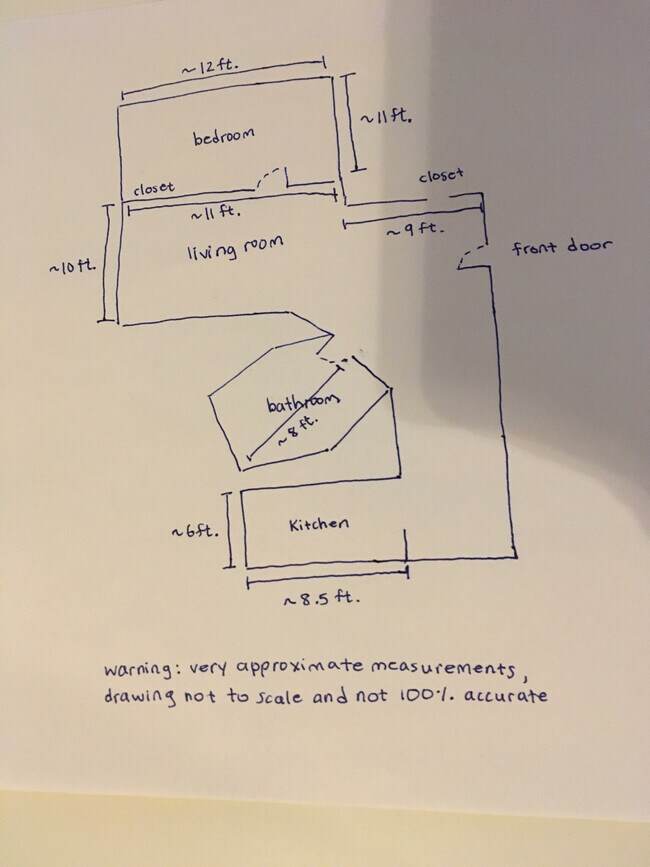 ~12ft.
~11ft.
bedroom
closet
closet
~11ft.
~9ft.
living room
front door
~10ft.
bathroom
~8ft.
~6ft.
Kitchen
~8.5 ft.
warning: very approximate measurements,
drawing not to scale and not 100% accurate